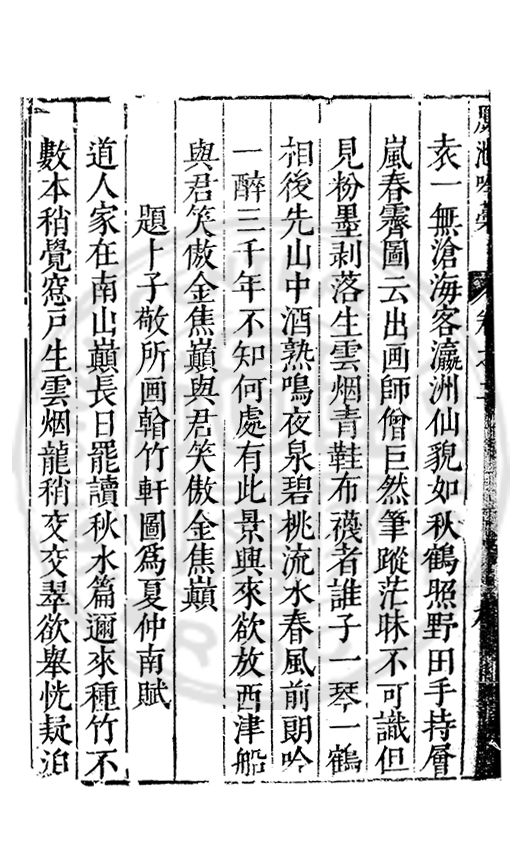 袁一無滄海客瀛洲仙貌如秋鶴照野田手持層
嵐春霽圖云出画師僧巨然筆蹤茫昧不可識但
見粉墨剥落生雲烟青鞋布襪者誰子一琴一鶴
相後先山中酒熟鳴夜泉碧桃流水春風前朗吟
一醉三千年不知何處有此景興來欲放西津船
與君笑傲金焦巔與君笑傲金焦巔
題卜子敬所画翰竹軒圖爲夏仲南賦
道人家在南山巔長日罷讀秋水篇邇來種竹不
數本稍覺窓戸生雲烟龍稍交交翠欲舉恍疑泊